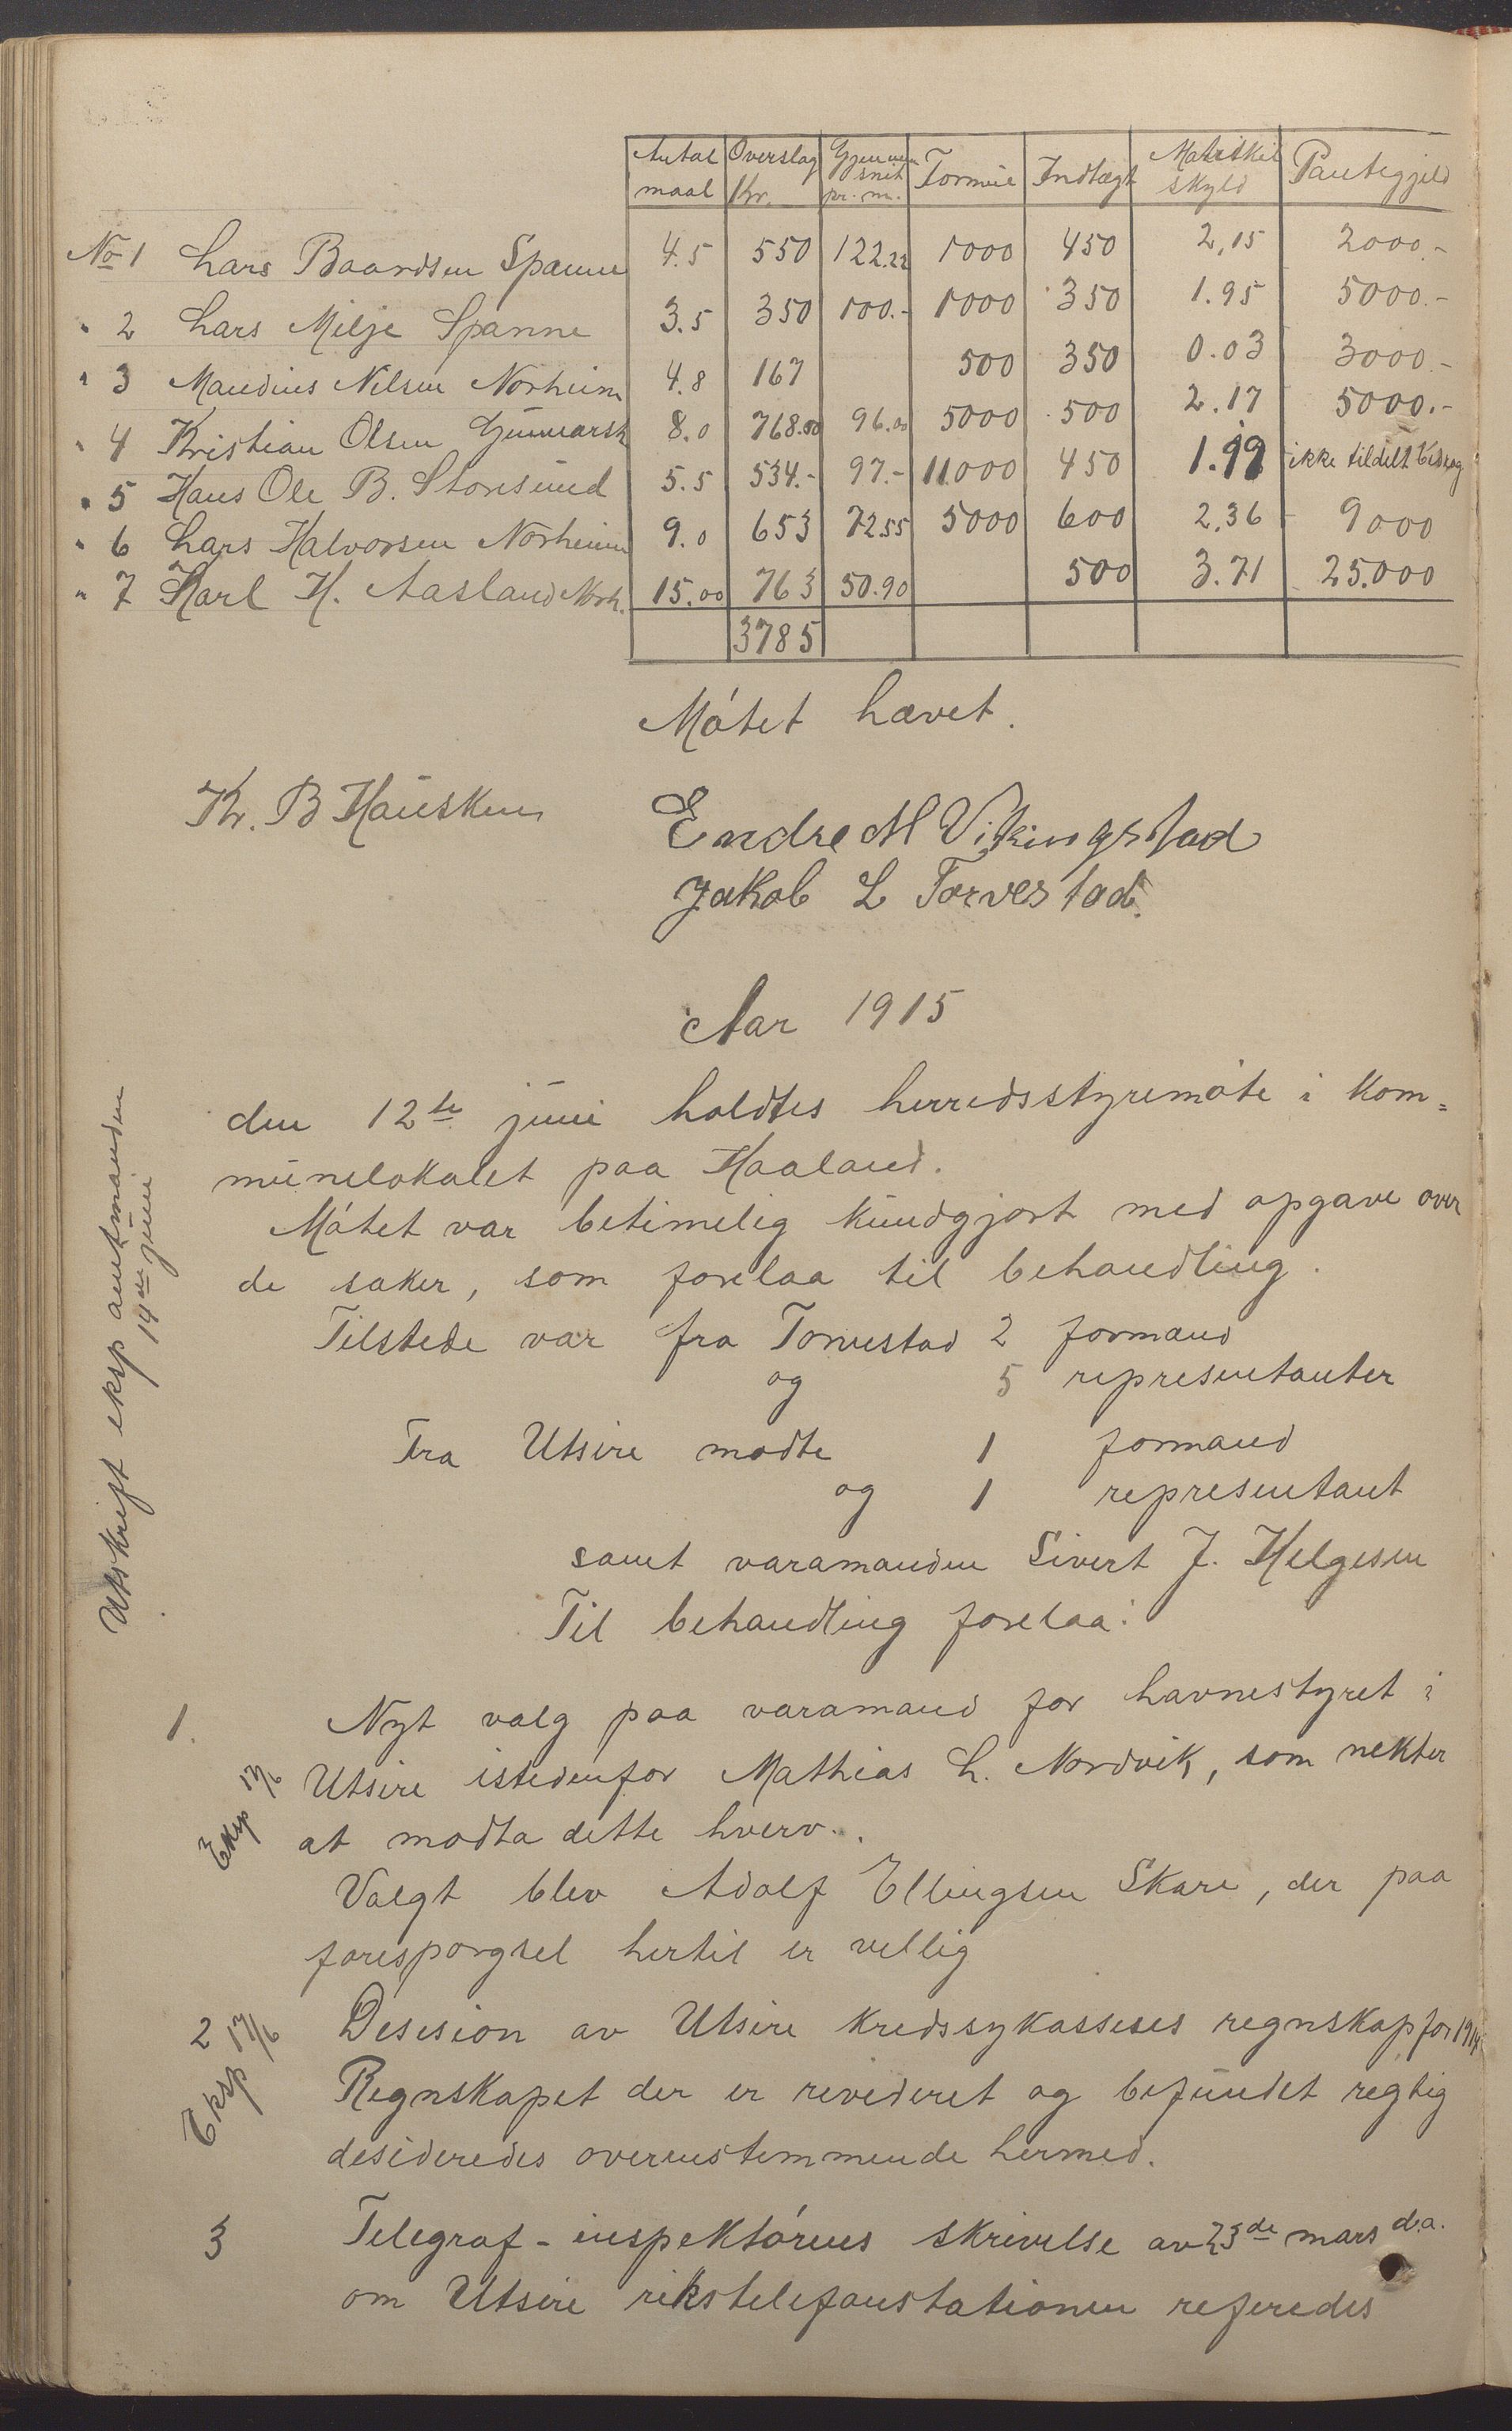 Antal maal | Overslag Kr. | Gjennemsnit pr. m. | Formue | Indtægt | Matrikel skyld | Pantegjeld
No 1 Lars Baardsen Spanne 4.5 550 122.22 1000 450 2,15 2000.-
" 2 Lars Milje Spanne 3.5 350 100.- 1000 350 1.95 5000.-
" 3 Maudius Nilsen Norheim 4.8 167 500 350 0.03 3000.-
" 4 Kristian Olsen Gunnarsh 8.0 768.00 96.00 5000 500 2.17 5000.-
" 5 Hans Ole B. Storesund 5.5 534.- 97.- 11000 450 1.99 ikke tildelt bidrag
" 6 Lars Halvorsen Norheim 9.0 653 72.55 5000 600 2.36 9000
" 7 Karl H. Aasland Norh. 15.00 763 50.90 500 3.71 25.000
3785
Mótet hævet.
Kr. B Hausken
Endre M Vikingstad
Jakob L Torvestad.
Aar 1915
den 12te juni holdtes herredsstyremøte i kom=
munelokalet paa Haaland.
Mótet var betimelig kundgjort med opgave over
de saker, som forelaa til behandling.
Tilstede var fra Torvestad 2 formænd
og 5 representanter
Fra Utsire mødte 1 formand
og 1 representant
samt varamanden Sivert J. Helgesen
Til behandling forelaa:
Utskrift eksp amtmanden
14de juni
1. Nyt valg paa varamand for havnestyret i
Eksp 17/6 Utsire istedenfor Mathias L. Nordvik, som nekter
at modta dette hverv.
Valgt blev Adolf Ellingsen Skare, der paa
forespørgsel hertil er villig
2 Desision av Utsire kredssykasseses regnskap for 1914
Eksp 17/6 Regnskapet der er revideret og befundet regtig
desideredes overenstemmende hermed.
3 Telegraf-inspektórens skrivelse av 23de mars d.a.
om Utsire rikstelefonstationen referedes